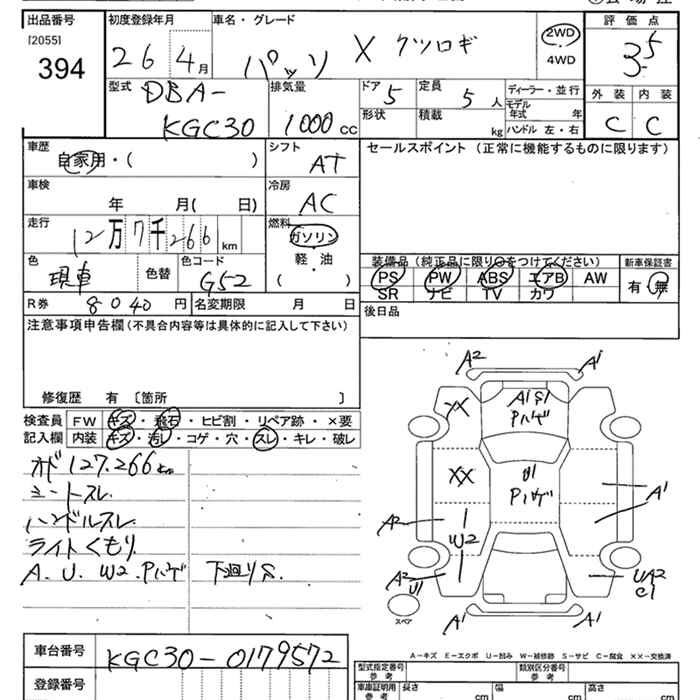 出品番号
[2055]
394
初度登録年月
26 4月
車名・グレード
パッソ X クツロギ
2WD
4WD
評価点
3.5
外装 内装
C C
型式
DBA-
KGC30
排気量
1000cc
ドア 5
形状
定員 5人
積載 kg
ディーラー・並行
モデル
年式 年
ハンドル 左・右
車歴
自家用・( )
シフト
AT
セールスポイント (正常に機能するものに限ります)
車検
年 月( 日)
冷房
AC
走行
12万7千266km
燃料
ガソリン
軽・油
( )
色
現車
色替
色コード
G52
装備品(純正品に限り○をつけてください)
PS PW ABS エアB AW
SR ナビ TV カワ
新車保証書
有・無
R券 8040円
名変期限 月 日
後日品
注意事項申告欄(不具合内容等は具体的に記入して下さい)
修復歴 有 〔箇所 〕
検査員
記入欄
FW キズ・飛石・ヒビ割・リペア跡・×要
内装 キズ・汚レ・コゲ・穴・スレ・キレ・破レ
オド127.266km
シートスレ
ハンドルスレ
ライトくもり
A.U.W2.Pハゲ 下廻りS.
A2 A1
XX
A1 S1
Pハゲ
XX
U1
Pハゲ
A1
A2
W2
A2
U1
UA2
C1
スペア
A1 A1
A-キズ E-エクボ U-凹み W-補修跡 S-サビ C-腐食 XX-交換済
車台番号
KGC30-0179572
登録番号
型式指定番号
参考
類別区分番号
参考
車庫証明用
参考
長さ cm
幅 cm
高さ cm